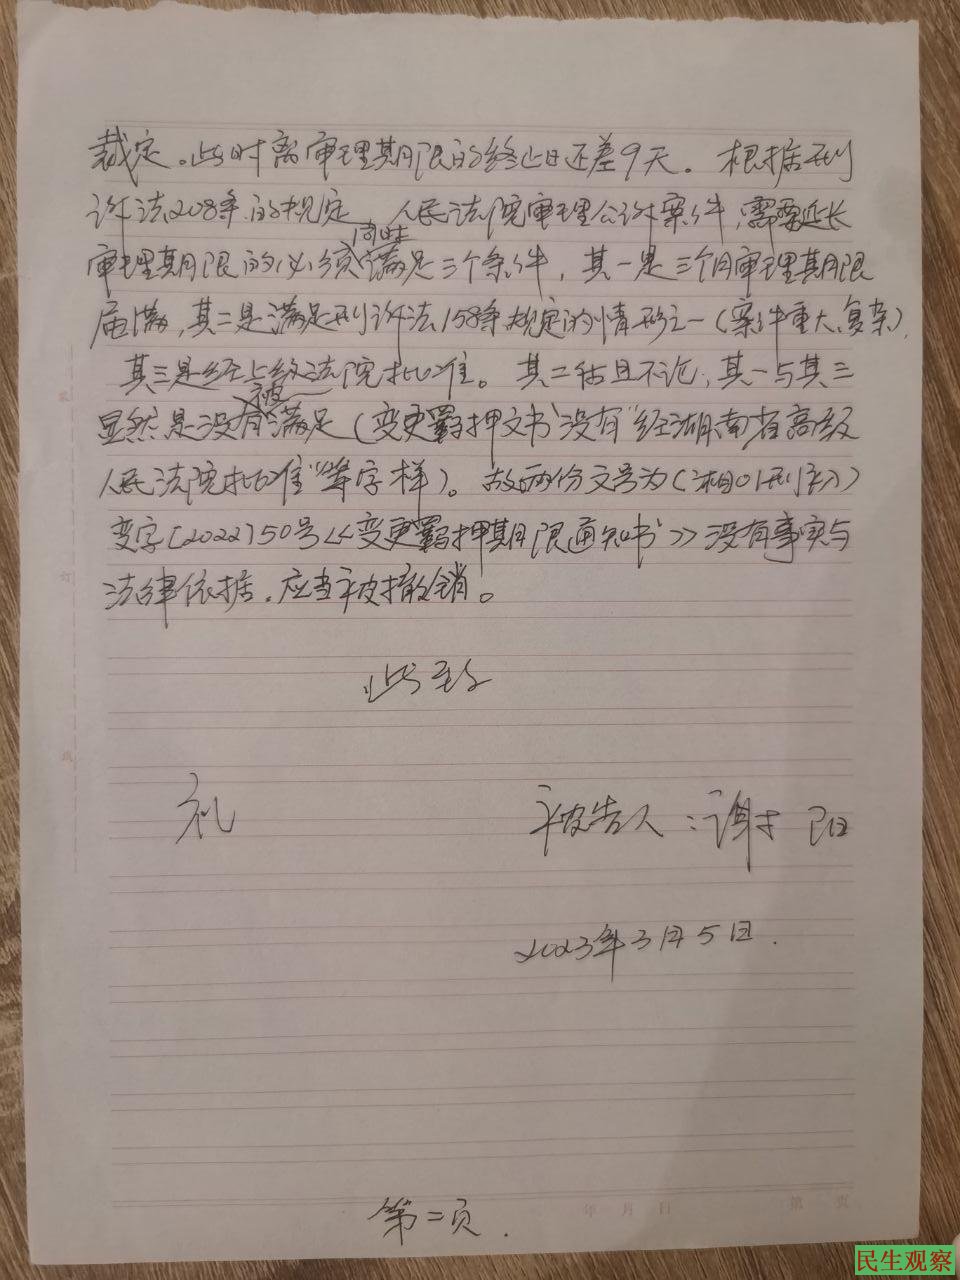 裁定。此时离审理期限的终止日还差9天。根据刑
诉法208条的规定,人民法院审理公诉案件,需要延长
审理期限的必须同时满足三个条件,其一是三个月审理期限
届满,其二是满足刑诉法158条规定的情形之一(案件重大、复杂),
其三是经上级法院批准。其二姑且不论,其一与其三
显然是没有被满足(变更羁押文书没有“经湖南省高级
人民法院批准”等字样)。故两份文号为(湘01刑)
变字[2022]50号《变更羁押期限通知书》没有事实与
法律依据,应当被撤销。
此致
礼
被告人:谢阳
2023年3月5日.
第二页.
装
订
线
年 月 日
第 页
民生观察